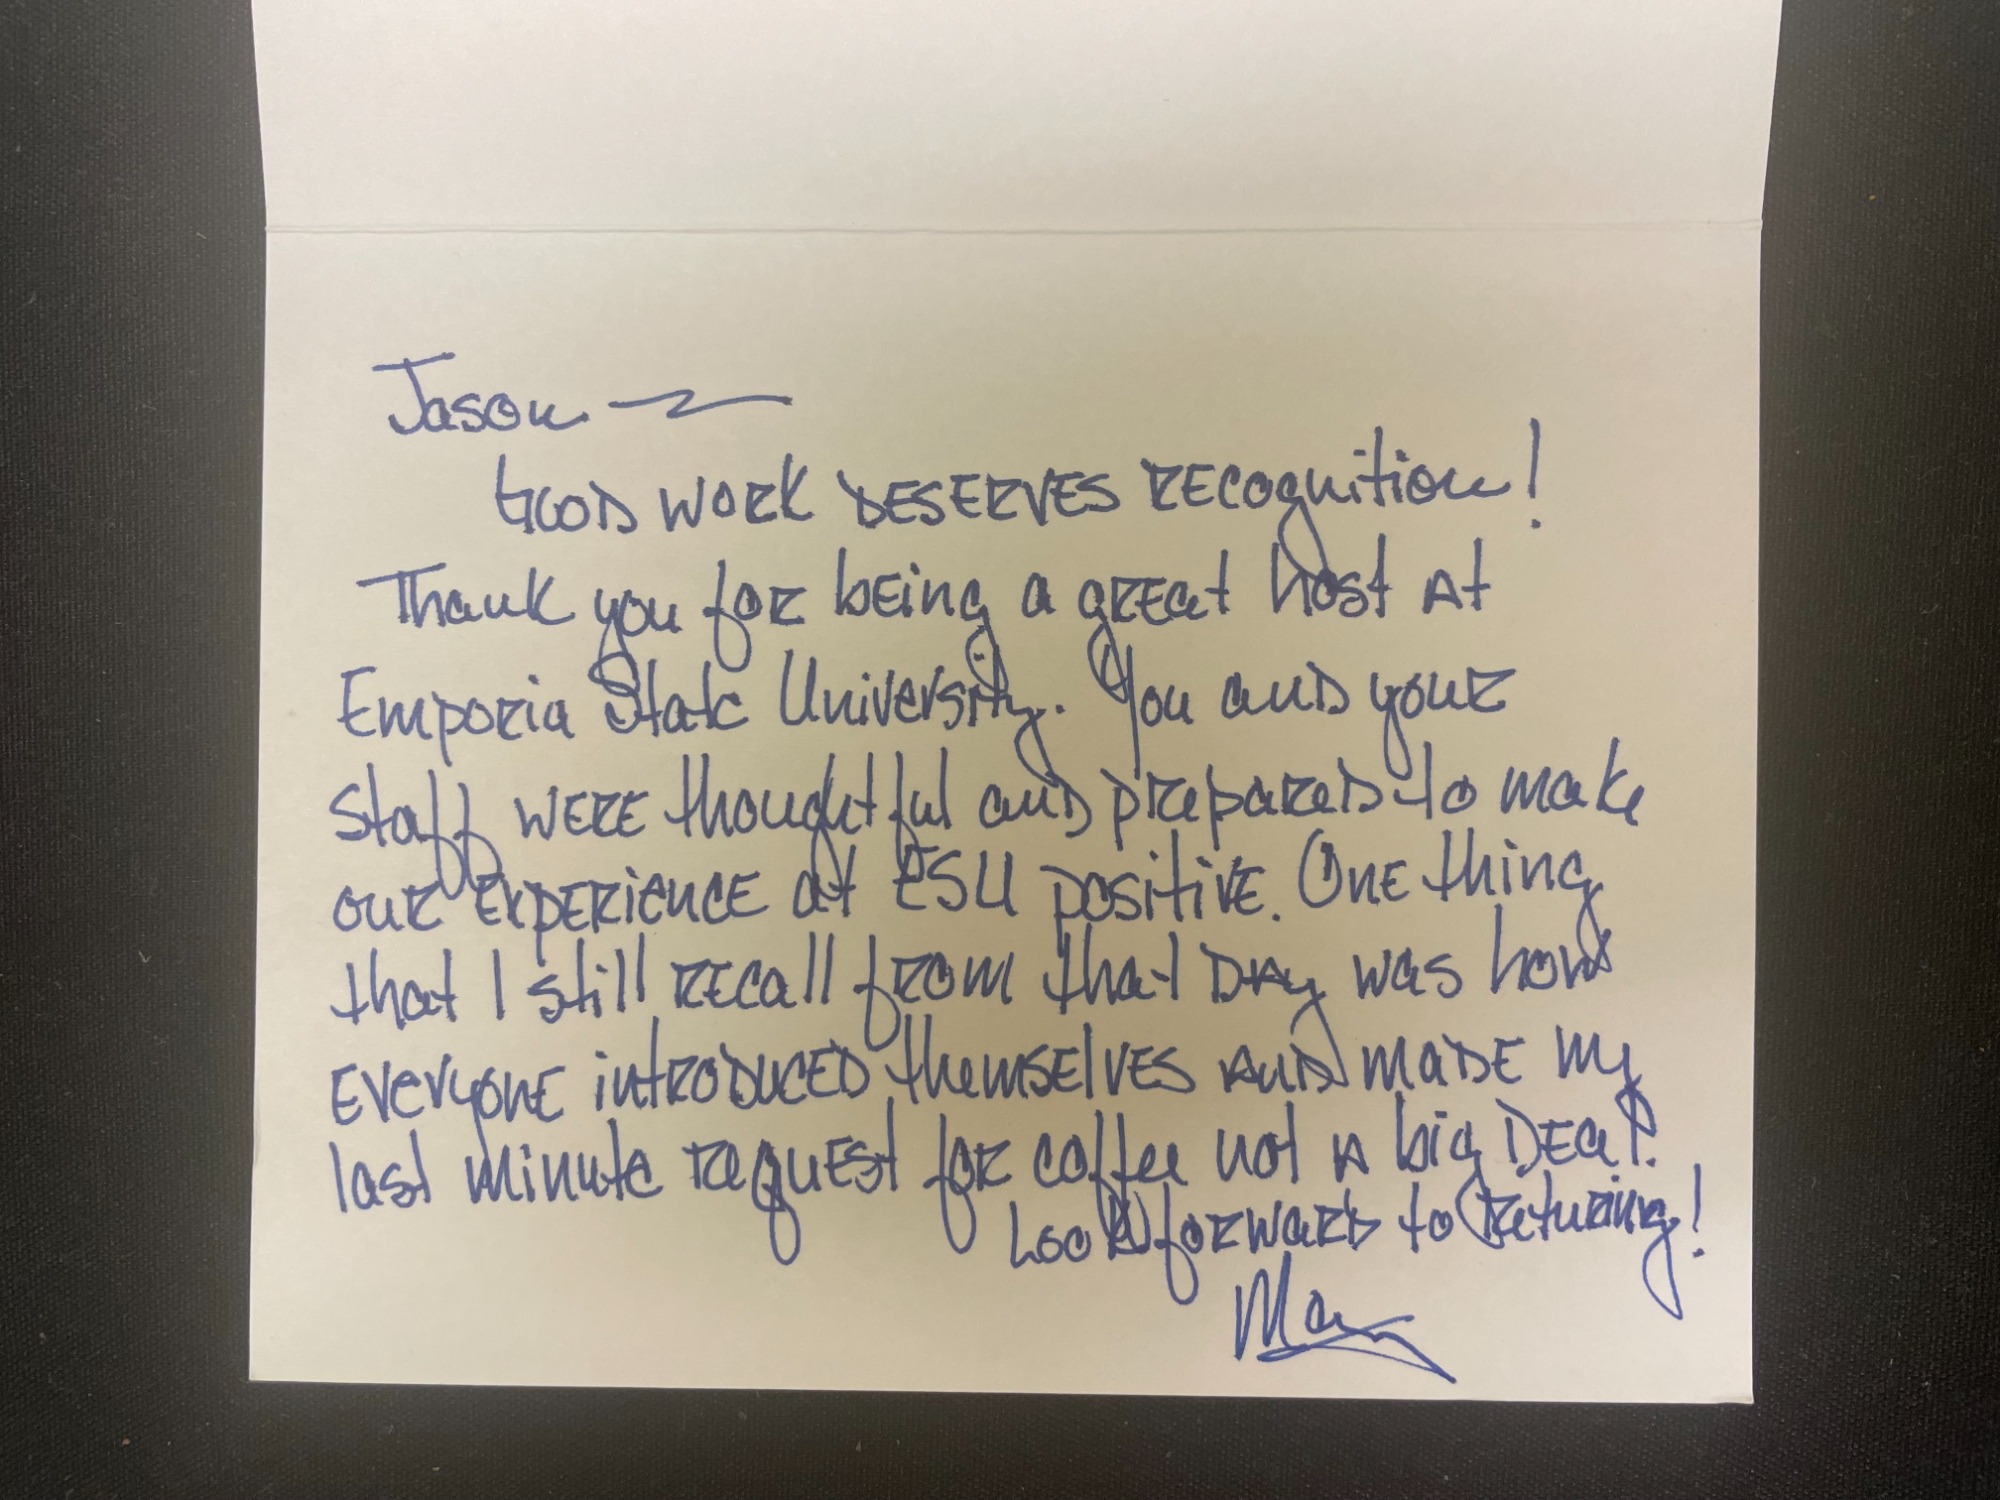 Jason
Good work deserves recognition!
Thank you for being a great host at
Emporia State University. You and your
staff were thoughtful and prepared to make
our experience at ESU positive. One thing
that I still recall from that day was how
everyone introduced themselves and made my
last minute request for coffee not a big deal.
Look forward to returing!